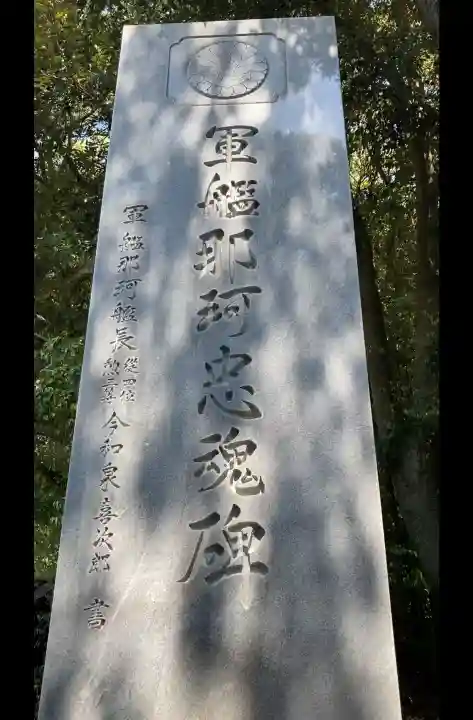 軍艦那珂忠魂碑
軍艦那珂艦長 従四位 勲二等 今和泉喜次郎 書